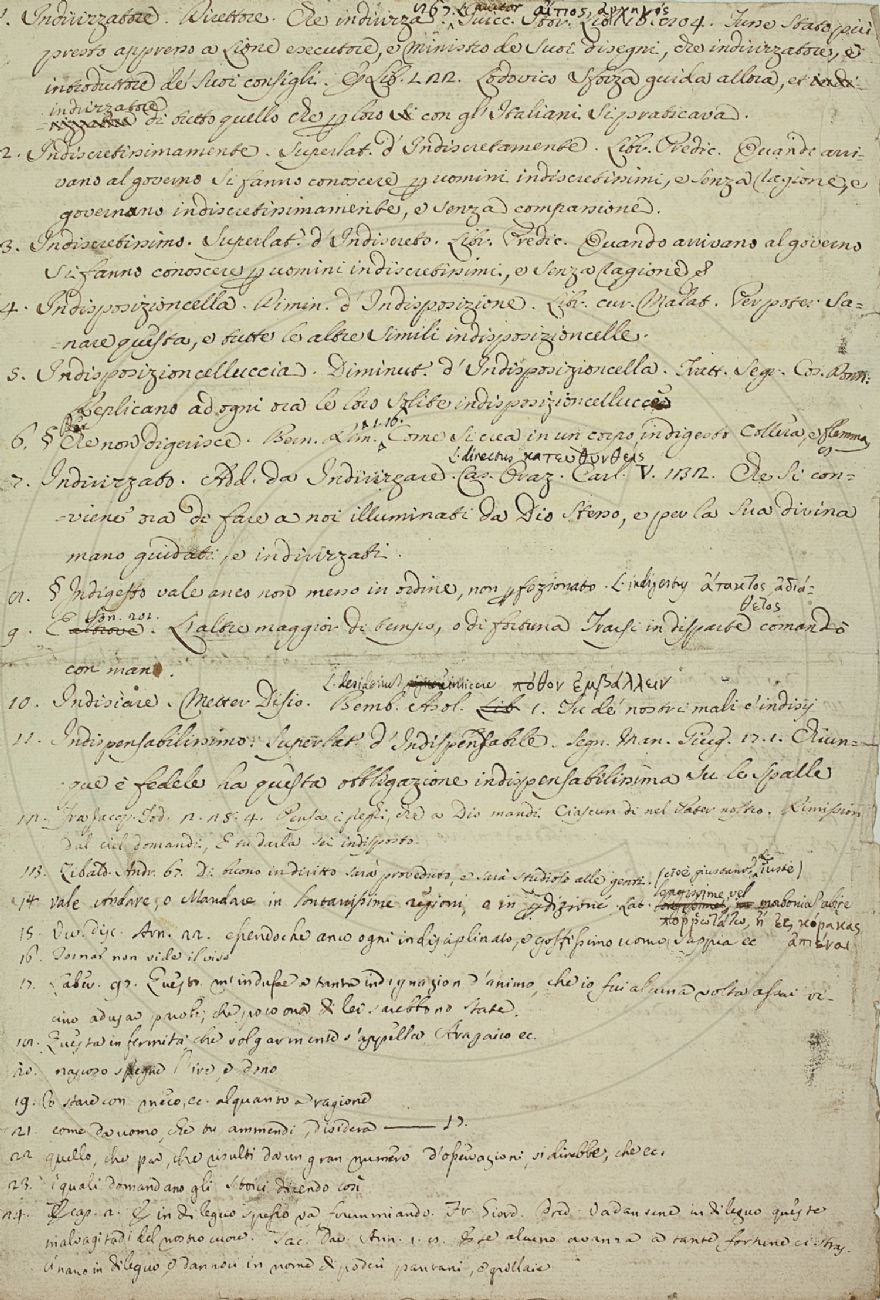 1. Indirizzatore. Direttore. Che indirizza αἴτιος, ἀρχηγός Guicc. Stor. Lib. Essere stato
presso appresso a Lione executore, e ministro de suoi disegni, che indirizzatore, e
introduttore de' suoi consigli. E Lib. Lodovico Sforza guida allora, et
indirizzatore di tutto quello che per loro con gl' Italiani si praticava.
2. Indiscretissimamente. Superlat. d'Indiscretamente. Libr. Predic. Quando arri-
vano al governo si fanno conoscere p uomini indiscretissimi, e senza ragione, e
governano indiscretissimamente, e senza compassione.
3. Indiscretissimo. Superlat. d'Indiscreto. Libr. Predic. Quando arrivano al governo
si fanno conoscere p uomini indiscretissimi, e senza ragione
4. Indisposizioncella. Dimin. d'Indisposizione. Libr. cur. Malat. Per poter sa-
-nare questa, e tutte le altre simili indisposizioncelle.
5. Indisposizioncelluccia. Diminut. d'Indisposizioncella. Tratt. Segr. Cos. Donn.
Replicano ad ogni ora le loro solite indisposizioncellucce
6. § Che non digerisce. Bern. Orl. 1. 16. Come si crea in un corpo indigesto collera, e flemma
L. directus κατευθυνθείς
7. Indirizzato. Add. da Indirizzare. Cas. Oraz. Carl. V. 132. Che si con-
-viene ora di fare a noi illuminati da Dio stesso, e per la sua divina
mano guidati, e indirizzati.
8. § Indigesto vale anco non messo in ordine, non pfezionato. L. indigestus ἄτακτος ἀδιά-
θετος
9. E Son. 201. L'altre maggior di tempo, o di fortuna Trarsi in disparte comandò
con mano.
L. desiderium iniicere πόθον ἐμβάλλειν
10. Indisiare. Metter Disio. Bemb. Asol. 1. Tu de' nostri mali c'indisij
11. Indispensabilissimo. Superlat. d'Indispensabile. Segn. Man. Giug. 17. 1. Chiun-
que è fedele ha questa obbligazione indispensabilissima su le spalle
12. Fra Jacop. Tod. 2. 28. 4. Pensa che a Dio mandi Ciascun dì nel Pater nostro. Remission
dal ciel domandi, E tu darla sei indisposto.
13. Zibald. Andr. 67. Di buono indiritto sarà proveduto, e sarà studioso alle genti. (cioè giustam.te iuste)
14. vale Andare, o Mandare in lontanissime regioni, o in pdizione. Lat. longissime vel malonia abire
πορρωτάτω, ἢ ἐς κόρακας
ἀπιέναι
15. Disc. Arn. 22. essendoche anco ogni indisciplinato, e goffissimo uomo sappia ec
16. Tornar non vide il viso
17. Labor. 97. Questo m'indusse a tanta indegnazion d'animo, che io fui alcuna volta assai vi-
cino ad usar parole, che poco onor di lei sarebbono state.
18. Questa infermità, che volgarmente s'appella Aragaico ec.
20. spegne l'ire, e
19. E stare con meco, ec. alquanto a ragione
21. come da uomo, che tu ammendi, desidera —— 17.
22 quello, che par, che risulti da un gran numero d'operazioni, si direbbe, che ec.
23. i quali domandano gli Stoici dicendo così
24. cap. 2. in dileguo spesso va fummiando. Fr. Giord. Pred. Vadansene in dileguo queste
malvagitadi del nostro cuore. Tac. Dav. Ann. Se alcuno avanza a tante fortune ci stras-
cinano in dileguo e dannoci in nome di poderi pantani, e grillaie